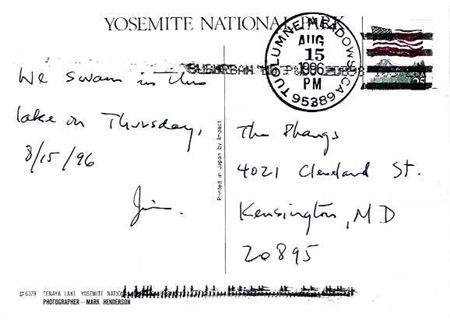 YOSEMITE NATIONAL PARK
TUOLUMNE MEADOWS, CA
AUG
15
1996
PM
95389
SUBURBAN MD P
We swam in this
lake on Thursday,
8/15/96
Jim.
Printed in Japan by Impact
The Phangs
4021 Cleveland St.
Kensington, MD
20895
6379 TENAYA LAKE YOSEMITE NATIO
PHOTOGRAPHER - MARK HENDERSON